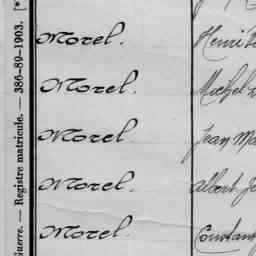 Guerre. — Registre matricule. — 386-89-1903. [*
Morel. Henri
Morel. Michel
Morel. Jean
Morel. Albert
Morel. Constant